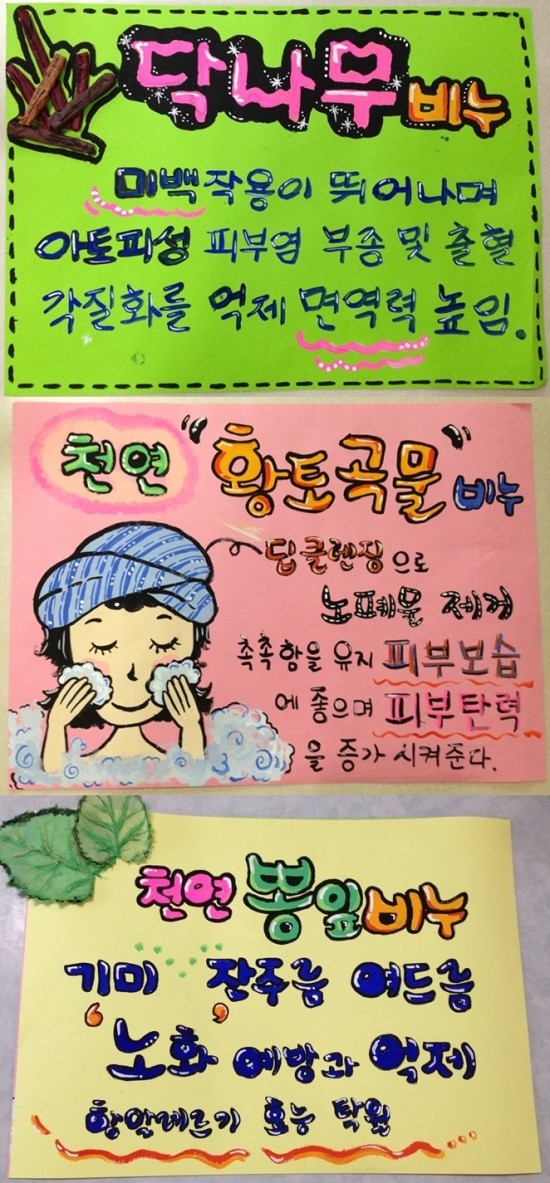 닥나무 비누
미백작용이 뛰어나며
아토피성 피부염 부종 및 출혈
각질화를 억제 면역력 높임.
천연 "황토곡물" 비누
딥클렌징으로
노폐물 제거
촉촉함을 유지 피부보습
에 좋으며 피부탄력
을 증가 시켜준다.
천연 뽕잎비누
기미, 잔주름, 여드름
노화 예방과 억제
항알레르기 효능 탁월